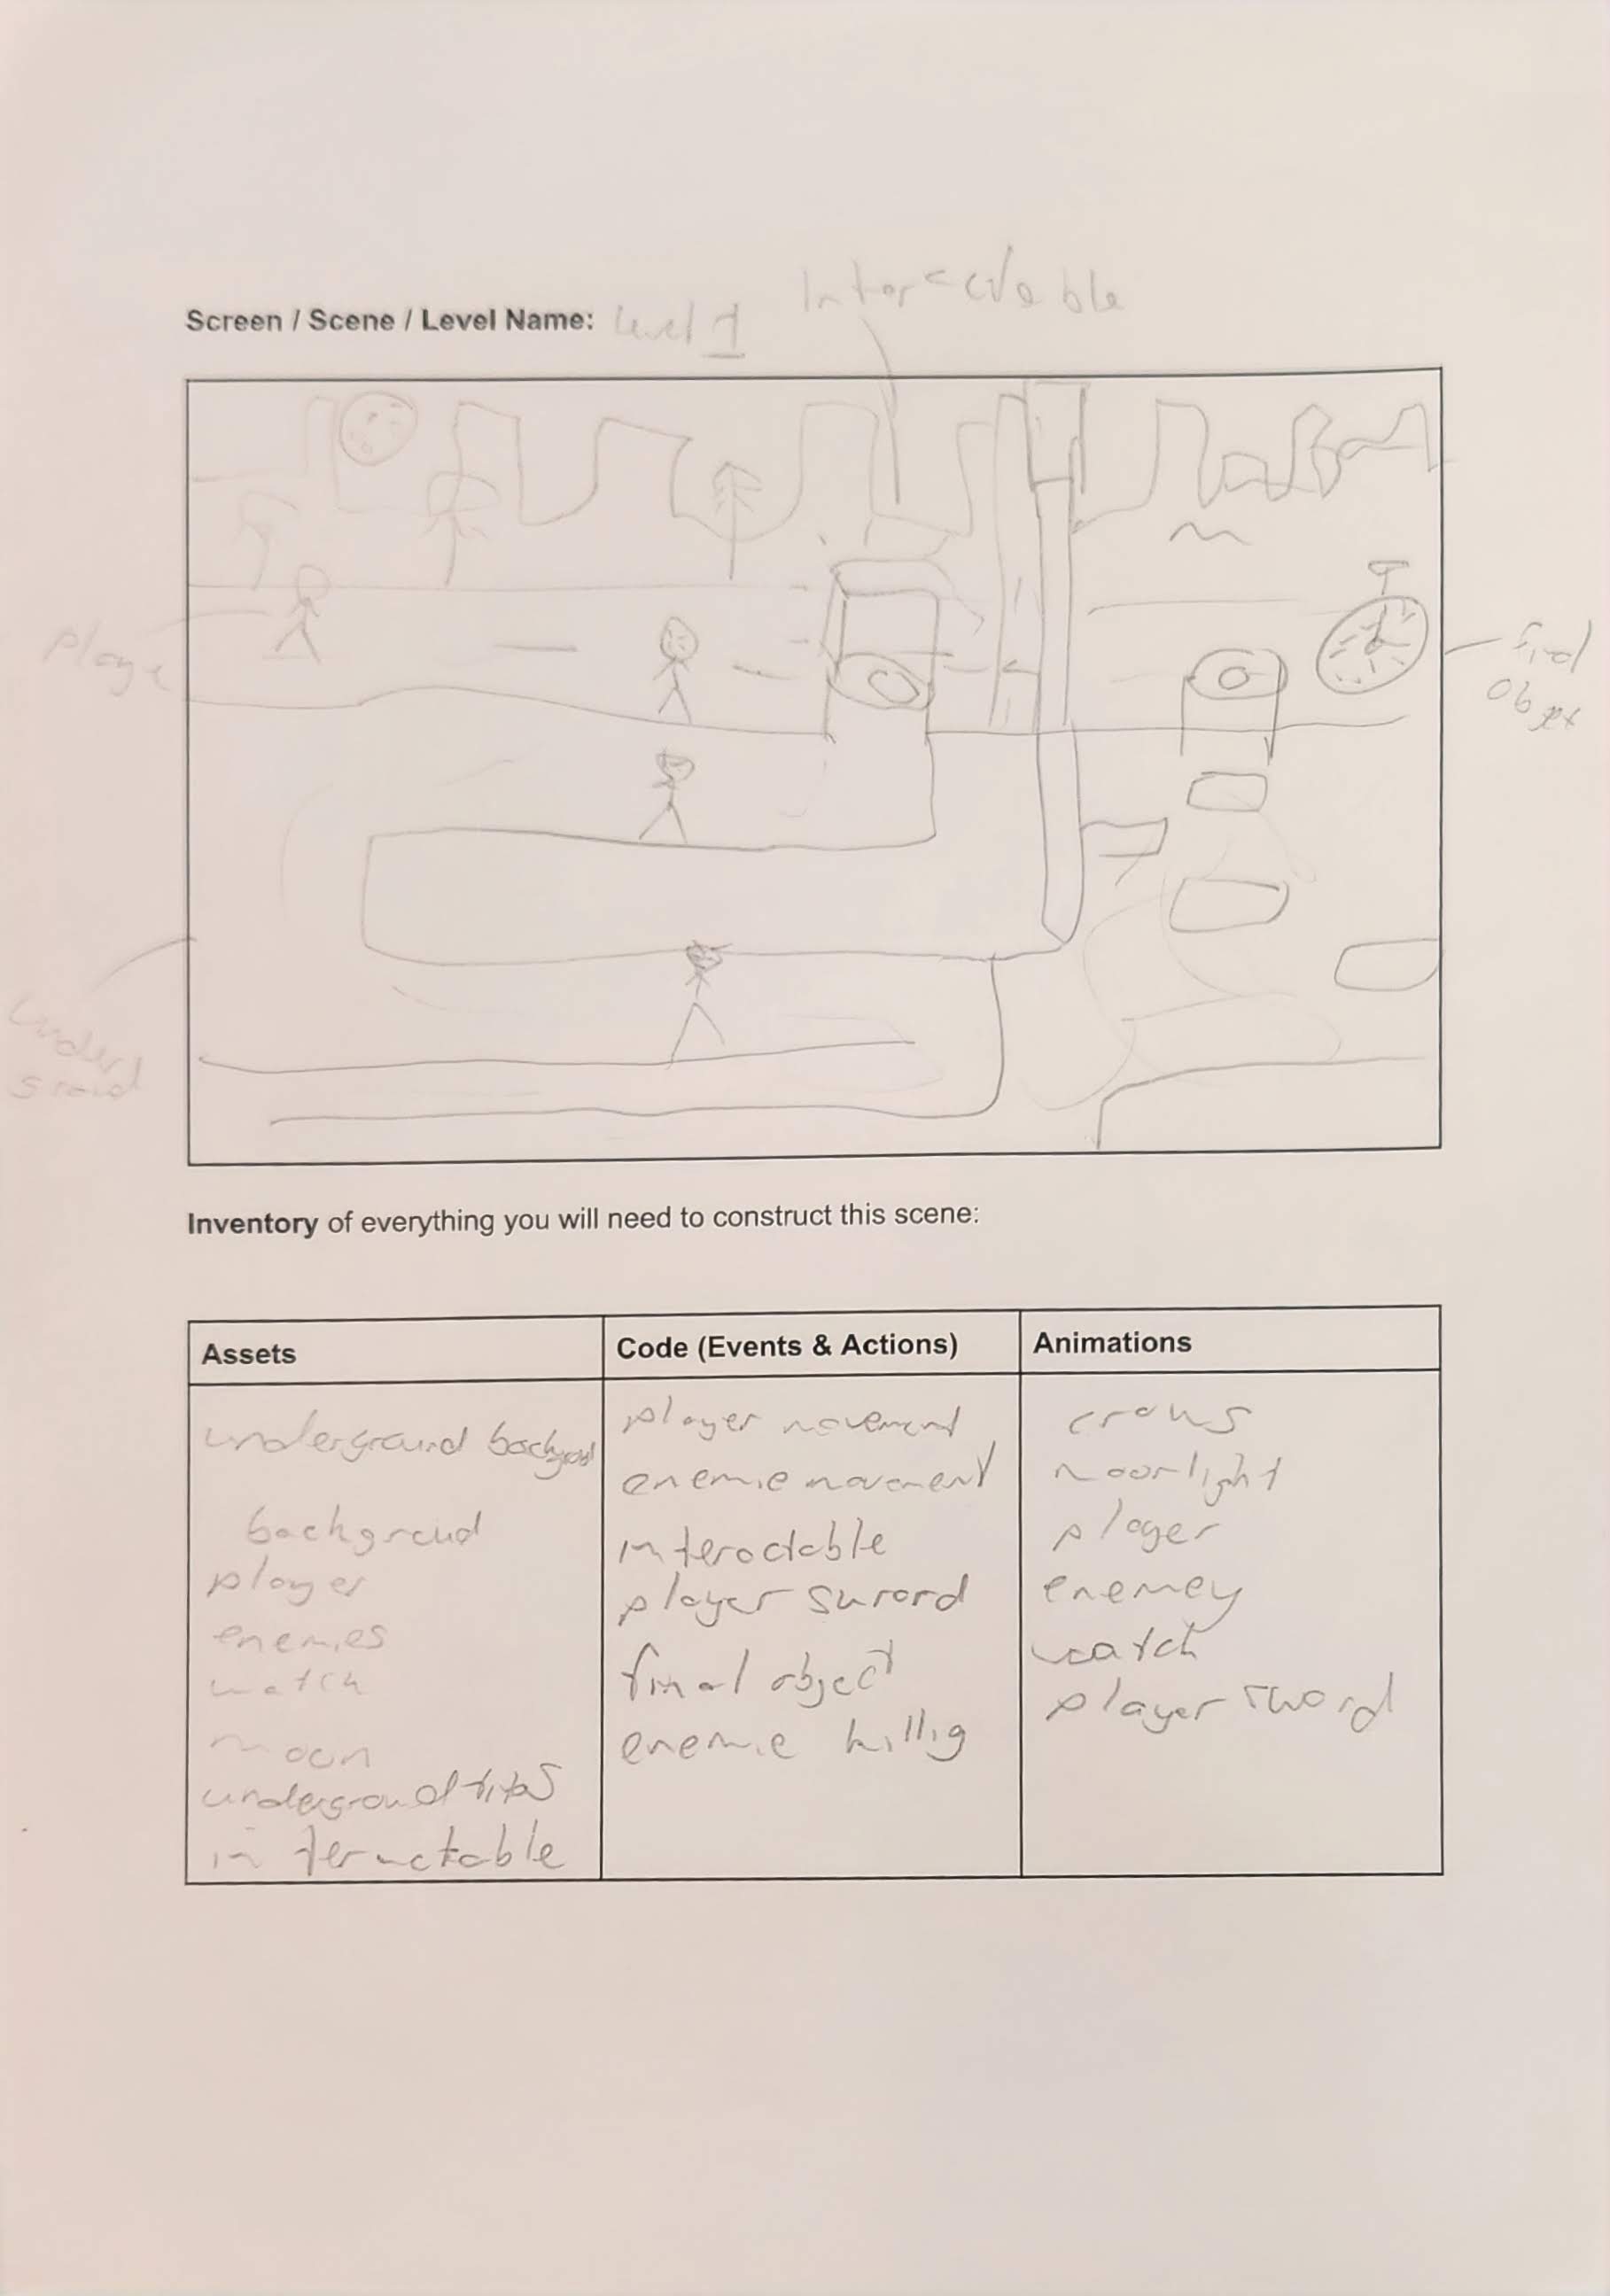 Interactable
Screen / Scene / Level Name: Level 1
Playe
final
Objet
Under
Inventory of everything you will need to construct this scene:
Assets
Code (Events & Actions)
Animations
underground backgroud
backgroud
player
enemies
watch
moon
underground
interactable
player movement
enemie movement
interactable
player surord
final object
enemie killig
crows
moonlight
player
enemey
watch
player sword